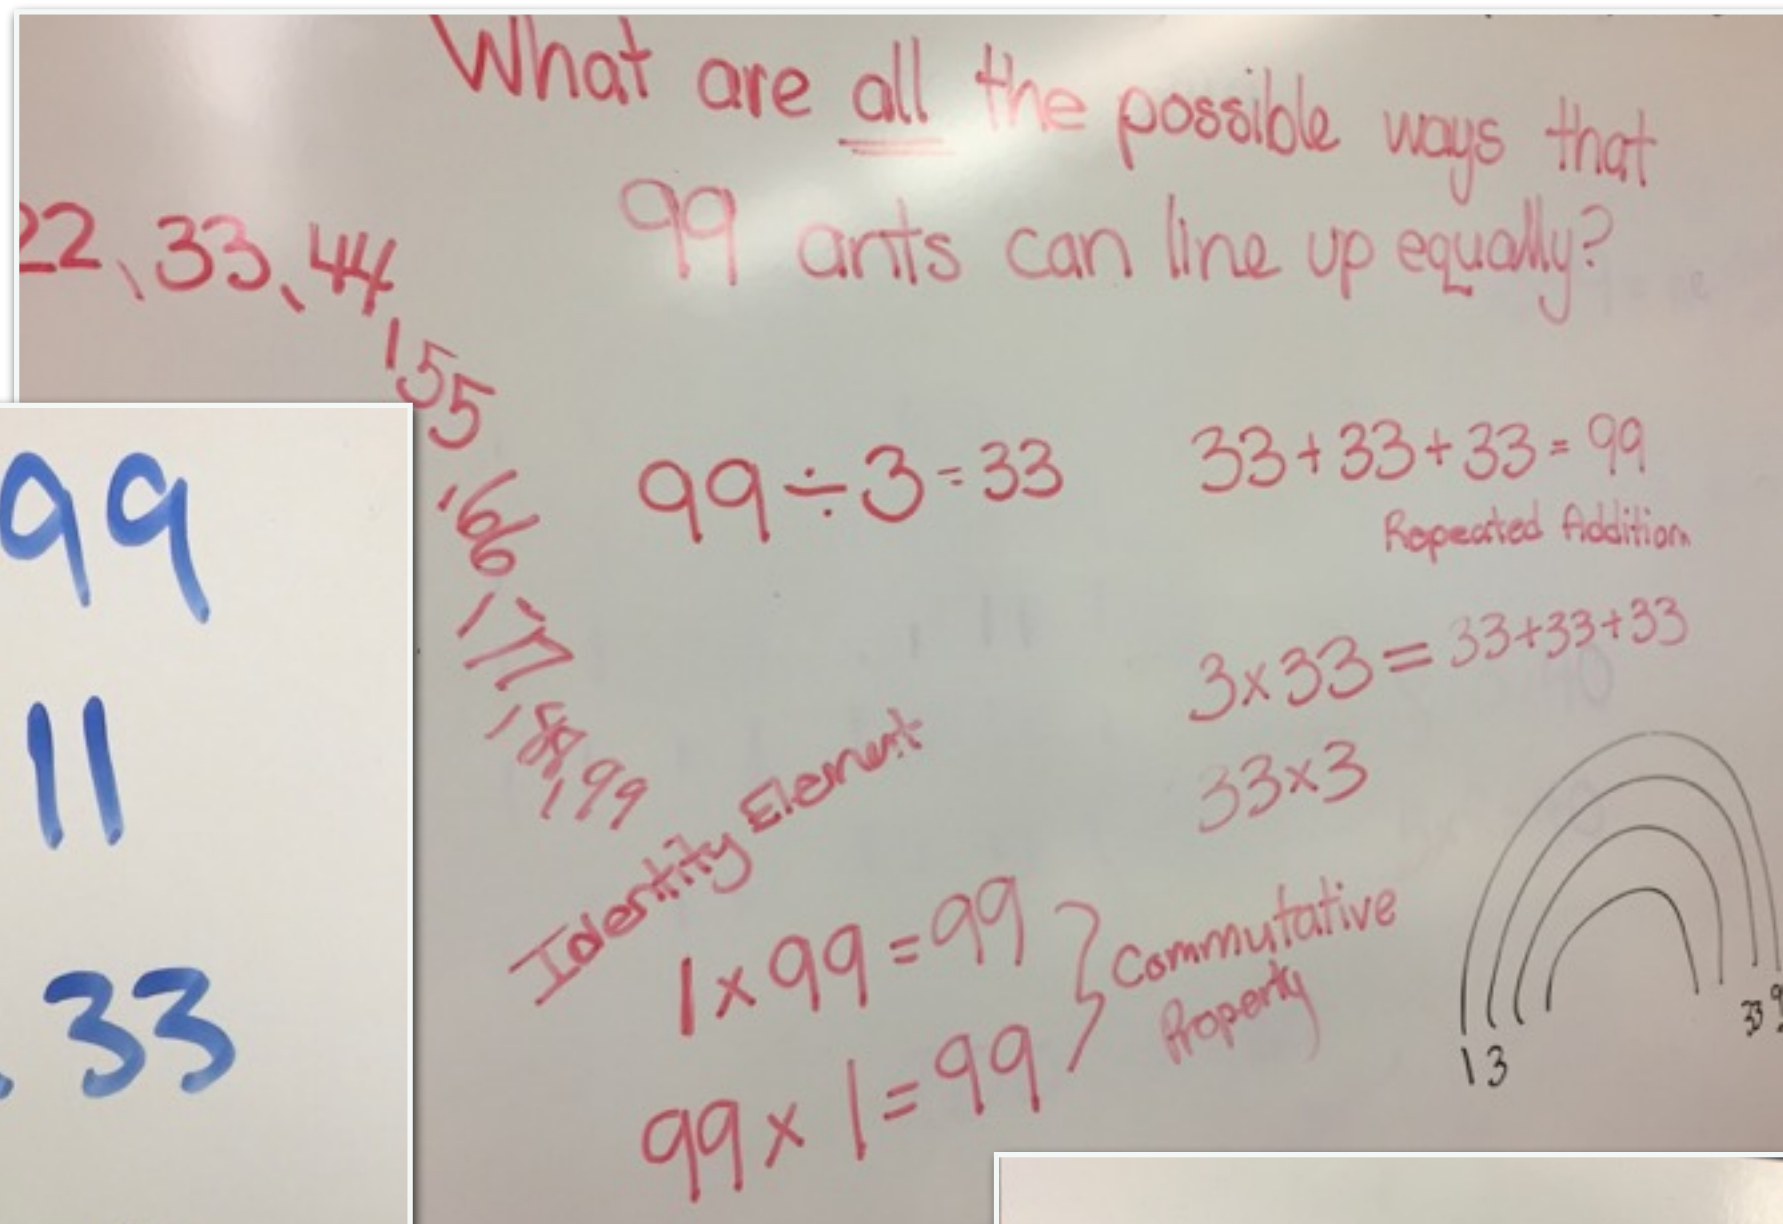 What are all the possible ways that
99 ants can line up equally?
22, 33, 44, 55, 66, 77, 88, 99
99 ÷ 3 = 33
33 + 33 + 33 = 99
Repeated Addition
3 x 33 = 33+33+33
33 x 3
Identity Element
1 x 99 = 99
99 x 1 = 99
Commutative
Property
1 3 33
99
11
33